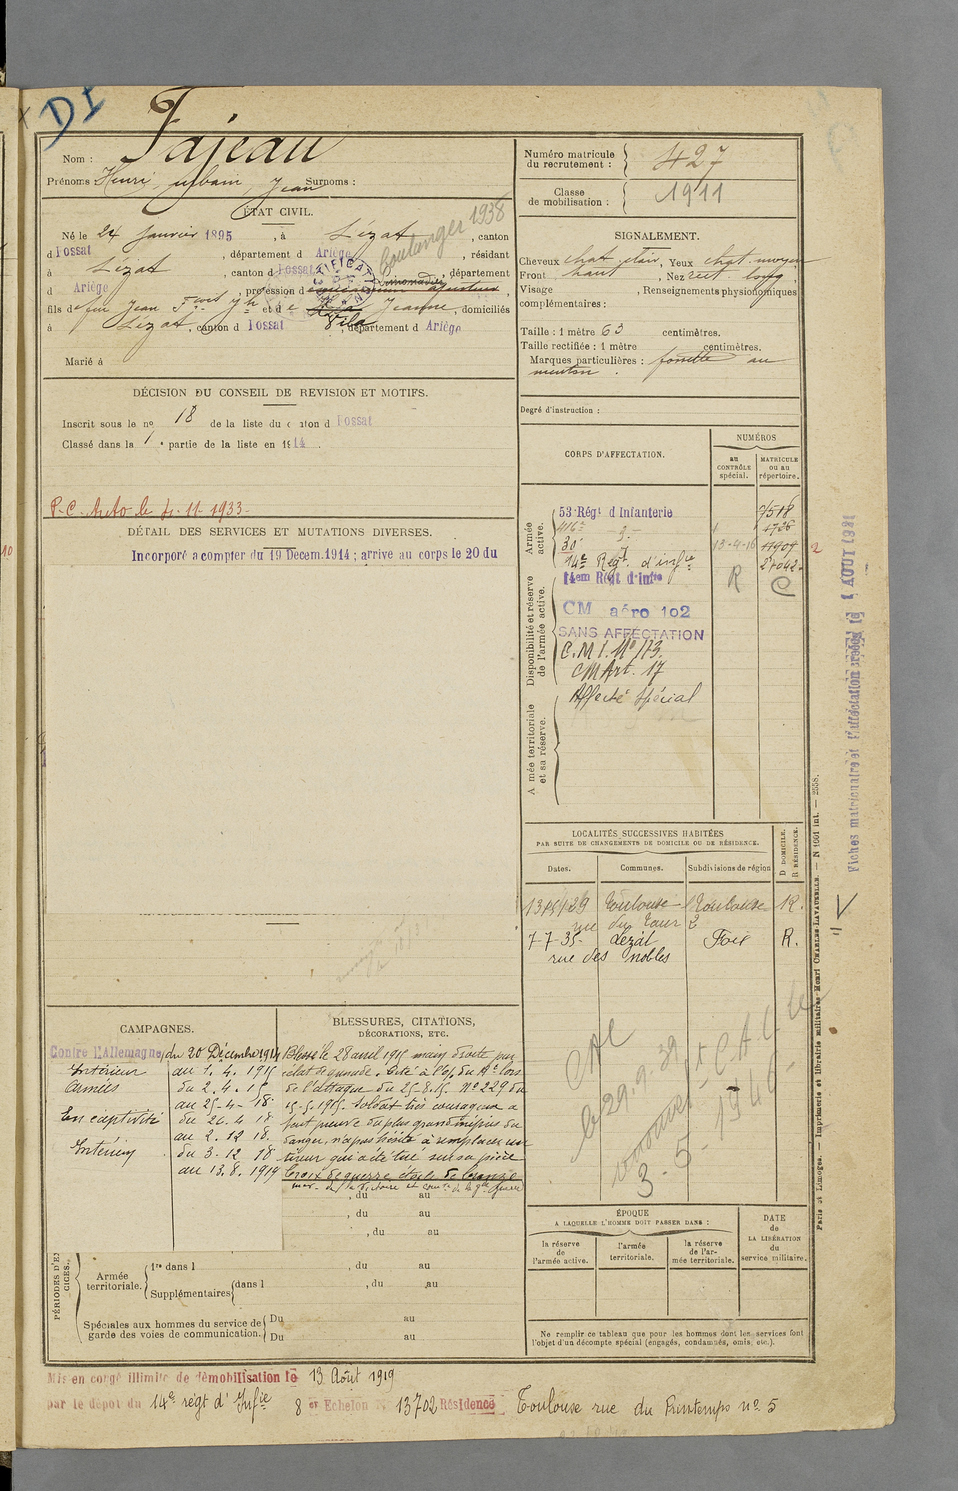 DI
Nom : Fajeau
Prénoms : Henri Urbain Jean Surnoms :
ÉTAT CIVIL.
Né le 24 Janvier 1895, à Lézat, canton
d Fossat, département d Ariège, résidant
à Lézat, canton d Fossat, département
d Ariège, profession de
boulanger 1938
fils de feu Jean et de Jeanne, domiciliés
Vila
à Lézat, canton d Fossat département d Ariège
Marié à
DÉCISION DU CONSEIL DE REVISION ET MOTIFS.
Inscrit sous le no 18 de la liste du canton d Fossat
Classé dans la 1e partie de la liste en 1914.
P.C. Auto le 4-11-1933
DÉTAIL DES SERVICES ET MUTATIONS DIVERSES.
Incorporé a compter du 19 Decem. 1914 ; arrive au corps le 20 du
CAMPAGNES.
Contre l'Allemagne du 20 Décembre 1914
Intérieur au 1. 4. 1915
Armées du 2. 4. 15
au 25-4-18
En captivité du 26-4 18
au 2. 12 18.
Intérieur du 3-12 18
au 13. 8. 1919
BLESSURES, CITATIONS,
DÉCORATIONS, ETC.
Blessé le 28 avril 1915 main droite par
éclat de grenade. Cité à l'O. du Rt lors
de l'attaque du 25.8.15. No 229 du
15.5.1915. Soldat très courageux a
fait preuve du plus grand mépris du
danger, n'a pas hésité à remplacer un
tireur qui a été tué sur sa pièce
Croix de guerre étoile de bronze
, du au
, du au
, du au
PÉRIODES D'EXERCICES.
Armée territoriale. 1re dans l , du au
Supplémentaires dans l , du au
Spéciales aux hommes du service de
garde des voies de communication.
Du au
Du au
Mis en congé illimité de démobilisation le 13 Août 1919
par le dépôt du 14e régt d'Infie 8 er Echelon N 13702 Résidence Toulouse rue du Printemps no 5
Numéro matricule
du recrutement : 427
Classe
de mobilisation : 1911
SIGNALEMENT.
Cheveux chat clair, Yeux chat. moyen
Front haut, Nez rect. long
Visage , Renseignements physionomiques
complémentaires :
Taille : 1 mètre 63 centimètres.
Taille rectifiée : 1 mètre centimètres.
Marques particulières : fossette au
menton.
Degré d'instruction :
CORPS D'AFFECTATION.
NUMÉROS
au
CONTRÔLE
spécial.
MATRICULE
ou au
répertoire.
Armée
active.
53 Régt d Infanterie 7518
416e
30e 13-4-16 11907
14e Regt. d'infie 27042
Disponibilité et réserve
de l'armée active.
14em Régt d'infie R C
CM aéro 102
SANS AFFECTATION
C.M I. No 173.
CM Art. 17
Armée territoriale
et sa réserve.
Affecté Spécial
LOCALITÉS SUCCESSIVES HABITÉES
PAR SUITE DE CHANGEMENTS DE DOMICILE OU DE RÉSIDENCE.
Dates.
Communes.
Subdivisions de région
D DOMICILE.
R RÉSIDENCE.
Toulouse Toulouse R.
rue du Taur 2
7-7-35- Lézat Foix R.
rue des nobles
CAL
le 29.9.39
3-5-1940
ÉPOQUE
A LAQUELLE L'HOMME DOIT PASSER DANS :
la réserve
de
l'armée active.
l'armée
territoriale.
la réserve
de l'ar-
mée territoriale.
DATE
de
LA LIBÉRATION
du
service militaire.
Ne remplir ce tableau que pour les hommes dont les services font
l'objet d'un décompte spécial (engagés, condamnés, omis, etc.).
Paris et Limoges. — Imprimerie et librairie militaires Henri CHARLES-LAVAUZELLE. — N 1001 int. — 2558.